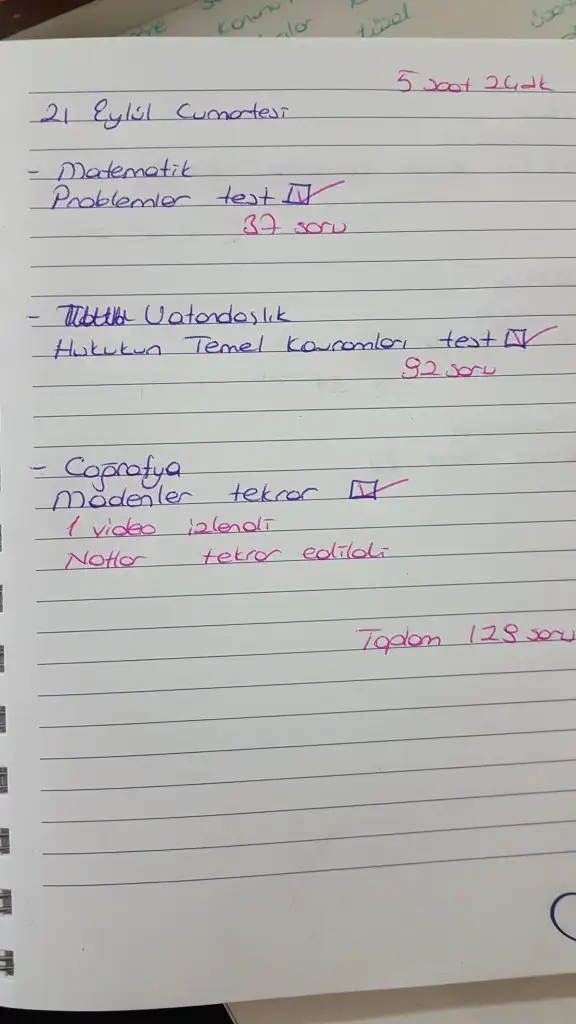 Korunu
tüzel
5 saat 24dk
21 Eylül Cumartesi
- Matematik
Problemler test
37 soru
- Vatandaşlık
Hukukun Temel Kavramları test
92 soru
- Coğrafya
Madenler tekrar
1 video izlendi
Notlar tekrar edildi
Toplam 129 soru